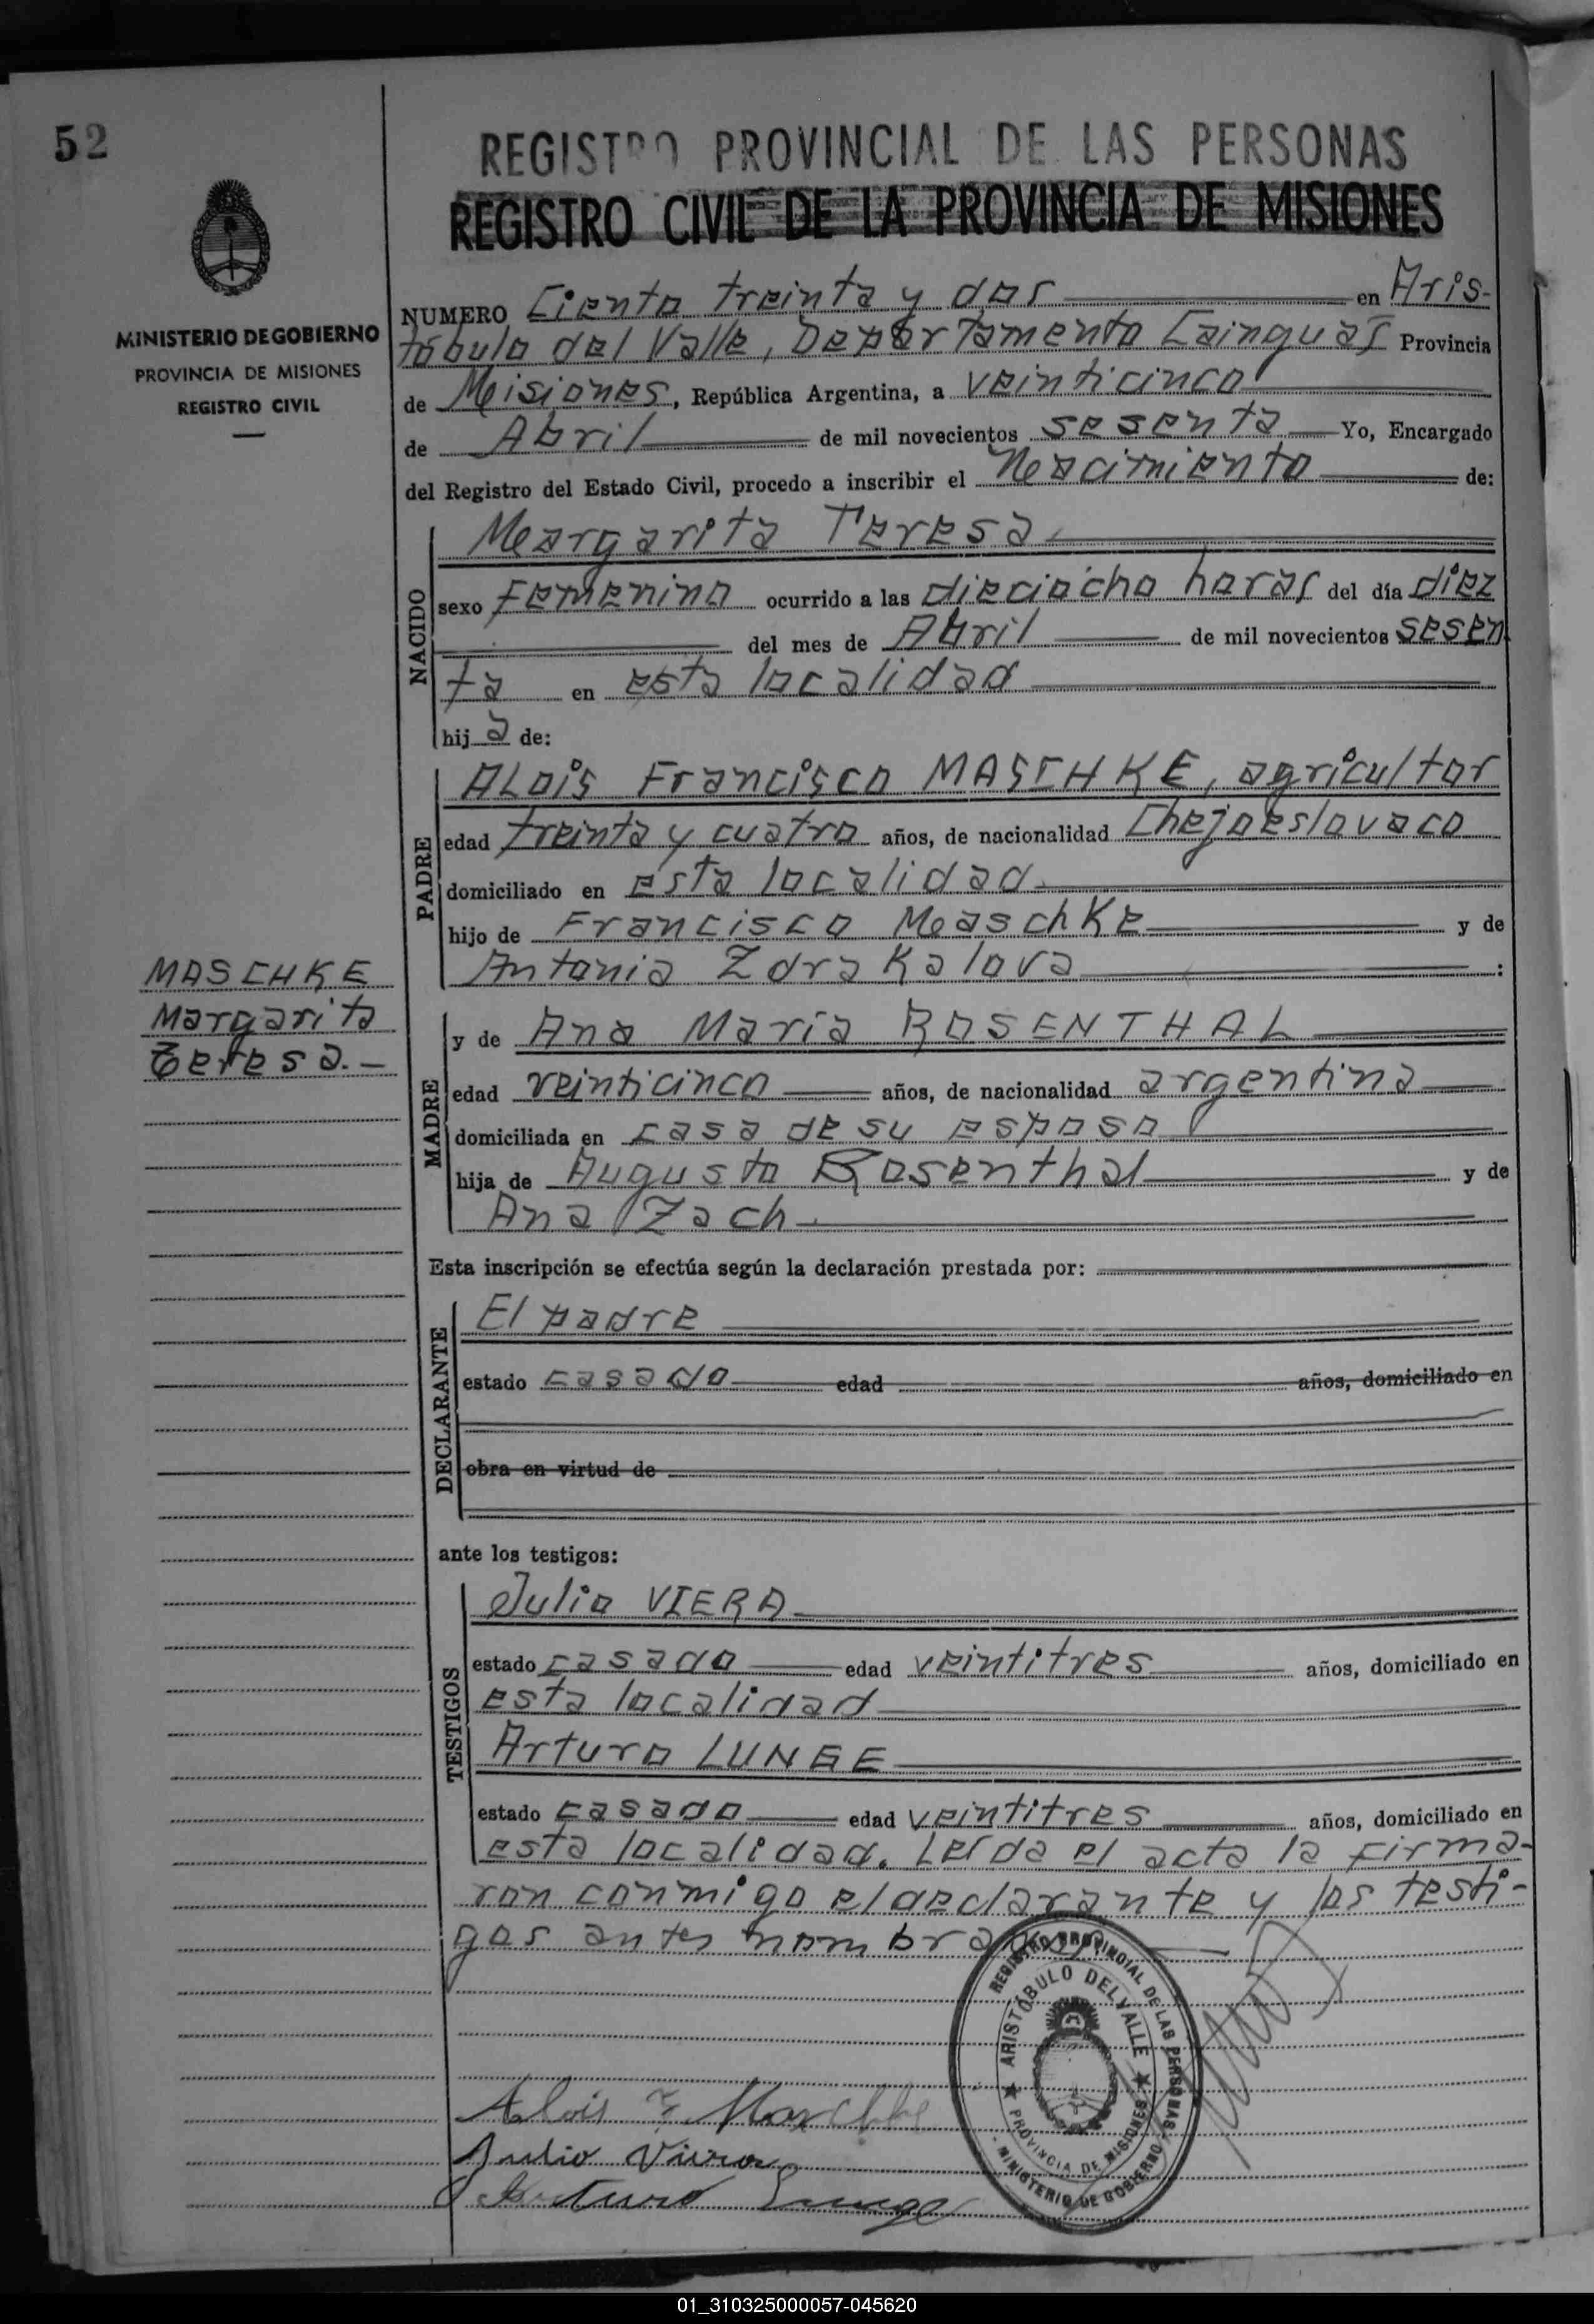 52
REGISTRO PROVINCIAL DE LAS PERSONAS
REGISTRO CIVIL DE LA PROVINCIA DE MISIONES
MINISTERIO DE GOBIERNO
PROVINCIA DE MISIONES
REGISTRO CIVIL
NUMERO Ciento treinta y dos en Aris-
tóbulo del Valle, Departamento Cainguás Provincia
de Misiones, República Argentina, a veinticinco
de Abril de mil novecientos sesenta Yo, Encargado
del Registro del Estado Civil, procedo a inscribir el Nacimiento de:
NACIDO
Margarita Teresa
sexo Femenino ocurrido a las dieciocho horas del día diez
del mes de Abril de mil novecientos sesen
ta en esta localidad
hija de:
PADRE
ALois Francisco MASCHKE, agricultor
edad treinta y cuatro años, de nacionalidad Chejoeslovaco
domiciliado en esta localidad
hijo de Francisco Maschke y de
Antonia Zdrakalova :
MASCHKE
Margarita
Teresa.-
MADRE
y de Ana María ROSENTHAL
edad veinticinco años, de nacionalidad argentina
domiciliada en casa de su esposo
hija de Augusto Rosenthal y de
Ana Zach
Esta inscripción se efectúa según la declaración prestada por:
DECLARANTE
El padre
estado casado edad años, domiciliado en
obra en virtud de
ante los testigos:
TESTIGOS
Julio VIERA
estado casado edad veintitres años, domiciliado en
esta localidad
Arturo LUNGE
estado casado edad veintitres años, domiciliado en
esta localidad. Leída el acta la firma-
ron conmigo el declarante y los testi-
gos antes nombrados
REGISTRO PROVINCIAL DE LAS PERSONAS
ARISTÓBULO DEL VALLE
PROVINCIA DE MISIONES
MINISTERIO DE GOBIERNO
Alois F Maschke
Julio Viera
Arturo Lunge
01_310325000057-045620